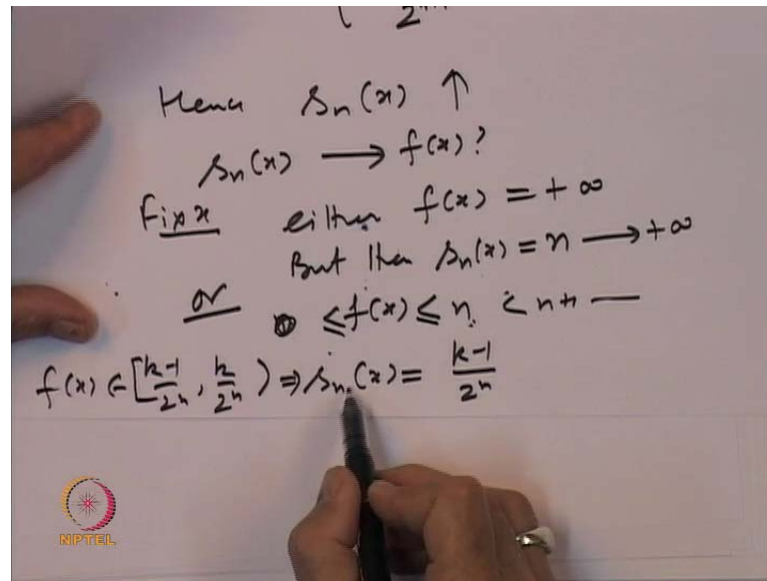 2ⁿ⁺¹
Hence sₙ(x) ↑
sₙ(x) → f(x)?
Fix x either f(x) = +∞
But then sₙ(x) = n → +∞
or 0 ≤ f(x) ≤ n. < n+1 —
f(x) ∈ [k-1/2ⁿ, k/2ⁿ) ⇒ sₙ(x) = k-1/2ⁿ
NPTEL